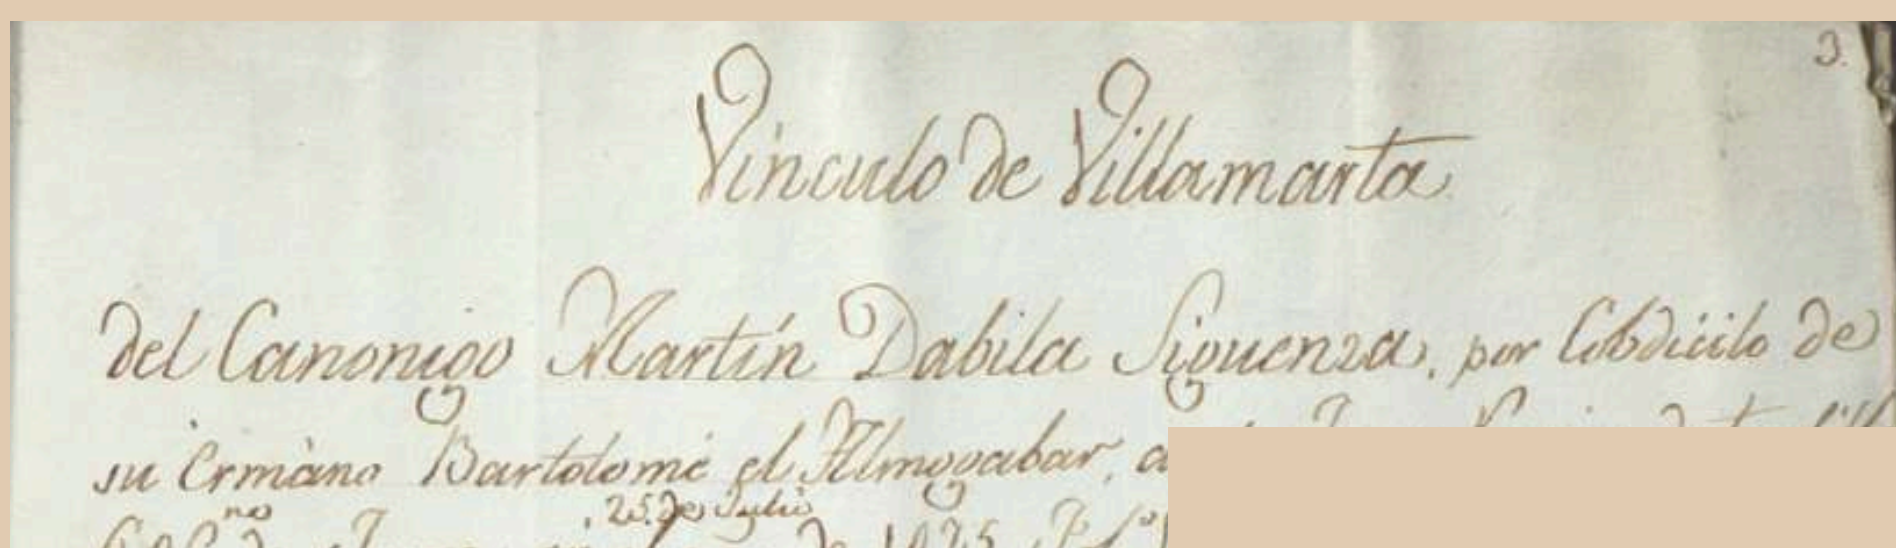 3.
Vinculo de Villamarta
del Canonigo Martín Dabila Siguenza, por Cobdicilo de
su Ermano Bartolomé el Almogabar,
25. de Julio